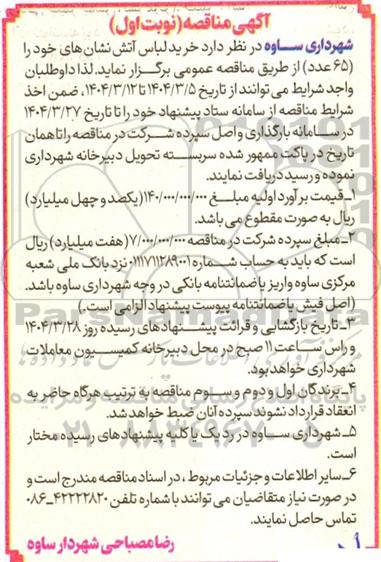 آگهی مناقصه (نوبت اول)
شهرداری ساوه در نظر دارد خرید لباس آتش نشان های خود را
(۶۵ عدد) از طریق مناقصه عمومی برگزار نماید. لذا داوطلبان
واجد شرایط می توانند از تاریخ ۱۴۰۴/۳/۵ تا ۱۴۰۴/۳/۱۲، ضمن اخذ
شرایط مناقصه از سامانه ستاد پیشنهاد خود را تا تاریخ ۱۴۰۴/۳/۲۷
در سامانه بارگذاری و اصل سپرده شرکت در مناقصه را تا همان
تاریخ در پاکت ممهور شده سربسته تحویل دبیرخانه شهرداری
نموده و رسید دریافت نمایند.
۱_ قیمت برآورد اولیه مبلغ ۱۴۰/۰۰۰/۰۰۰/۰۰۰ (یکصد و چهل میلیارد)
ریال به صورت مقطوع می باشد.
۲_ مبلغ سپرده شرکت در مناقصه ۷/۰۰۰/۰۰۰/۰۰۰ (هفت میلیارد) ریال
است که باید به حساب شماره ۰۱۱۱۷۱۱۲۸۹۰۰۱ نزد بانک ملی شعبه
مرکزی ساوه واریز یا ضمانتنامه بانکی در وجه شهرداری ساوه باشد.
(اصل فیش یا ضمانتنامه پیوست پیشنهاد الزامی است.)
۳_ تاریخ بازگشایی و قرائت پیشنهادهای رسیده روز ۱۴۰۴/۳/۲۸
و راس ساعت ۱۱ صبح در محل دبیرخانه کمیسیون معاملات
شهرداری خواهد بود.
۴_ برندگان اول و دوم و سوم مناقصه به ترتیب هرگاه حاضر به
انعقاد قرارداد نشوند سپرده آنان ضبط خواهد شد.
۵_ شهرداری ساوه در رد یک یا کلیه پیشنهادهای رسیده مختار
است.
۶_ سایر اطلاعات و جزئیات مربوط، در اسناد مناقصه مندرج است و
در صورت نیاز متقاضیان می توانند با شماره تلفن ۴۲۲۲۲۸۲۰_۰۸۶
تماس حاصل نمایند.
رضا مصباحی شهردار ساوه